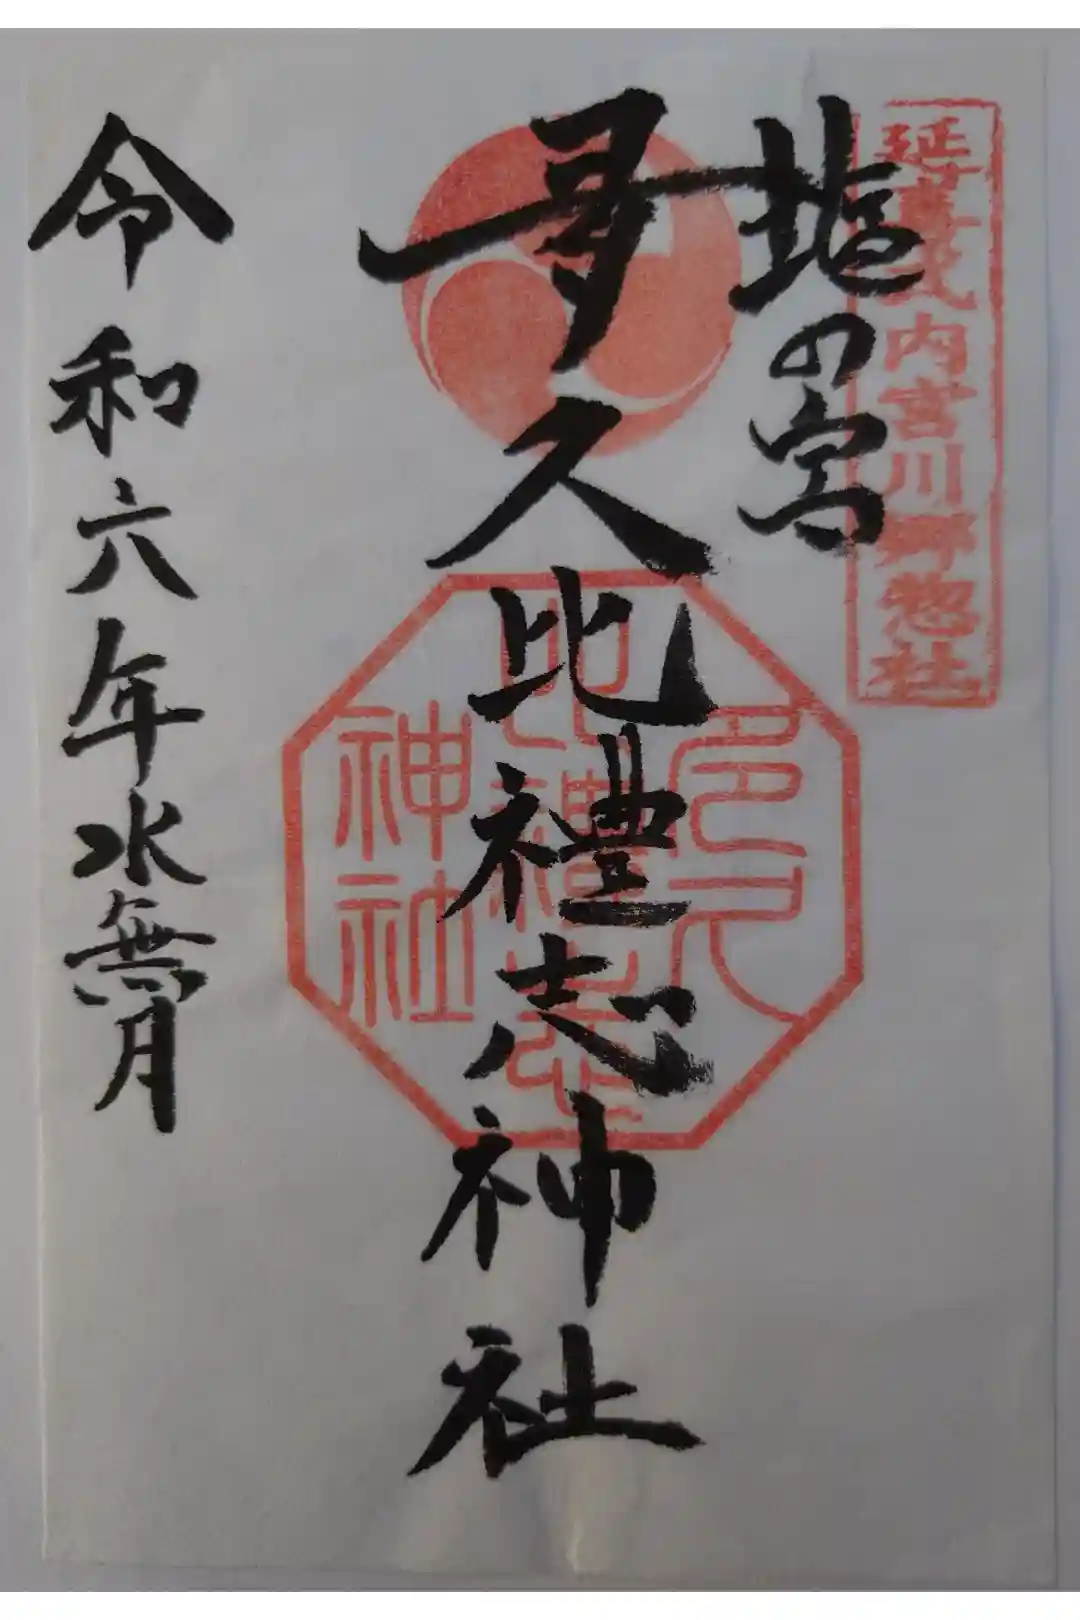 延喜式内宮川野惣社
塩の宮
多久比禮志神社
多久
比禮志
神社
令和六年水無月